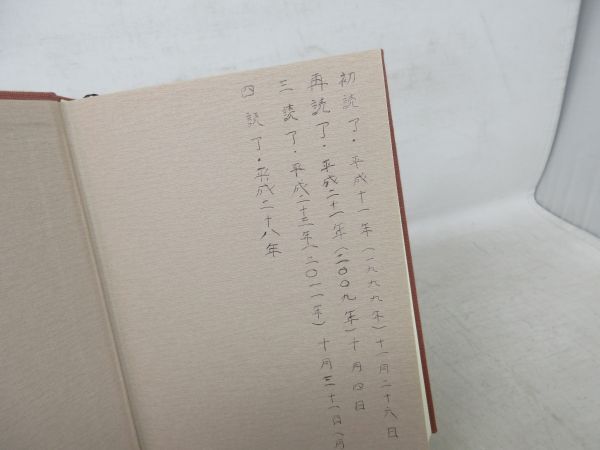 初読了・平成十一年(一九九九年)十一月二十六日
再読了・平成二十一年(二〇〇九年)十月四日
三読了・平成二十三年(二〇一一年)十月三十一日(月
四読了・平成二十八年